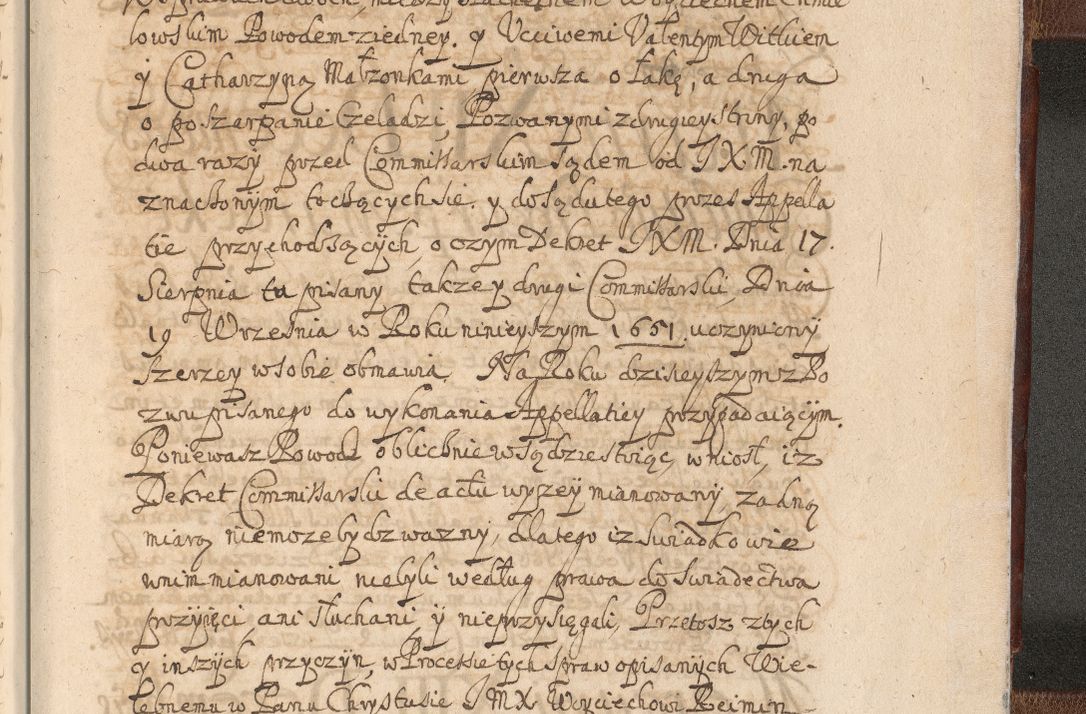 lowskim Powodem ziedney. y Vcciwemi Valentym Witkiem
y Catharzyną Małzonkami pierwsza o łąkę, a druga
o poszarpanie Czeladzi, Pozwanymi z drugiey strony, po
dwa razy przed Commissarskim sądem od I X. M. na
znaczonym toczących sie. y do sądu tego przez Appella
tie przychodzących, o czym Dekret I X M. Dnia 17.
Sierpnia tu pisany takze y drugi Commissarski, Dnia
19 Wrzesnia w Roku ninieyszym 1661 uczyniony
szerzey w sobie obmawia. Na Roku dzisieyszym z Po
zwu pisanego do wykonania Appellatiey przypadaiącym.
Poniewasz Powod oblicznie w sądzie stoiąc, wniosł, iz
Dekret Commissarski de actu wyzey mianowany, zadną
miarą niemoze bydz wazny, dlatego iz swiadkowie
w nim mianowani niebyli według prawa do swiadectwa
przyięci, ani słuchani, y nieprzysięgali, Przetosz z tych
y inszych przyczyn, w Processie tych spraw opisanych Wie-
lebnemu w Panu Chrystusie I M X. Woyciechowi Reimin